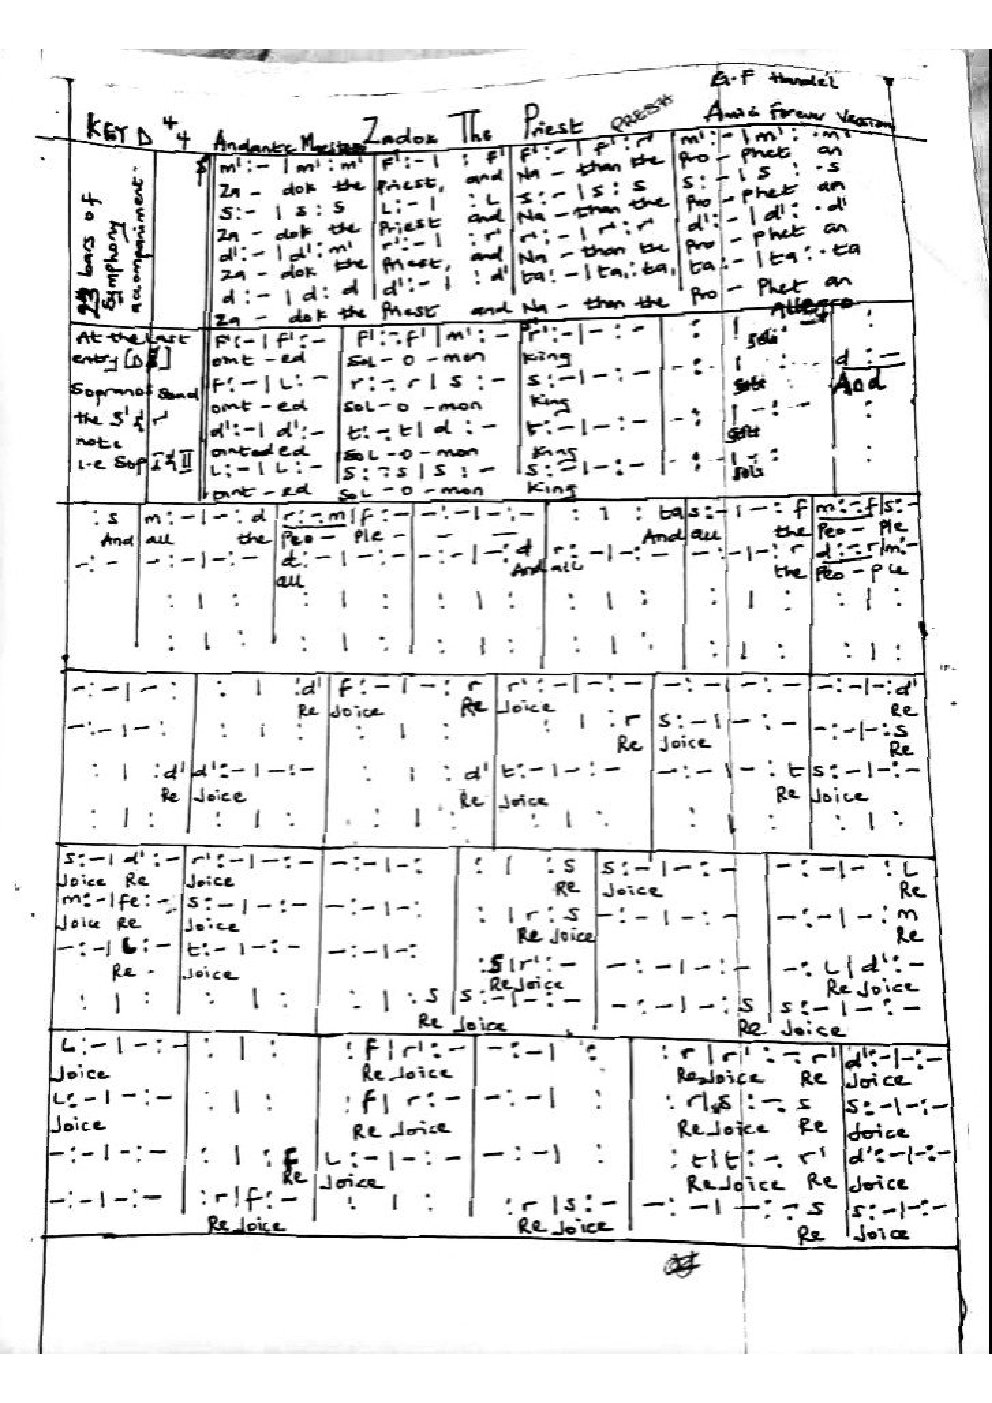 G.F Handel
KEY D 4/4 Andante Zadok The Priest PRESH Forever Version
23 bars of Symphony accompaniment
f m':- | m':m' | f':- | : f' | f':- | f':r' | m':- | m': .m'
Za - dok the Priest, and Na - than the Pro - phet an
s:- | s:s | L:- | : L | s:- | s:s | s:- | s: .s
Za - dok the Priest and Na - than the Pro - phet an
d':- | d':m' | r':- | : r' | r:- | r:r | d':- | d': .d'
Za - dok the Priest, and Na - than the Pro - phet an
d:- | d:d | d':- | : d' | ta:- | ta:ta | ta:- | ta: .ta
Za - dok the Priest and Na - than the Pro - phet an
Allegro
At the last
entry
Soprano Stand
the
note
i.e Sop I & II
f':- | f':- | f':-.f' | m':- | r':- | -:- | : | :
oint - ed Sol - o - mon King Soli
f:- | L:- | r:-.r | s:- | s:- | -:- | : | d:-
oint - ed Sol - o - mon King Soli And
d':- | d':- | t:-.t | d:- | t:- | -:- | : | :
ointed ed Sol - o - mon King Soli
L:- | L:- | s:-.s | s:- | s:- | -:- | : | :
oint - ed Sol - o - mon King Soli
: s | m:- | -:d | r:-.m | f:- | -:- | -:- | : | : ta | s:- | -:f | m:-.f | s:-
And all the Peo - ple - - - And all the Peo - ple
-:- | -:- | -:- | d:- | -:- | -:- | -:d | r:- | -:- | -:- | -:r | d:-.r | m:-
all And all the Peo - ple
: | : | : | : | : | : | :
: | : | : | : | : | : | :
-:- | -: | : | :d' | f:- | -:r | r':- | -:- | -:- | -:- | -:- | -:d'
Re Joice Re Joice Re
-:- | -: | : | : | : | : | : | :r | s:- | -:- | -:- | -:s
Re Joice Re
: | :d' | d':- | -:- | : | :d' | t:- | -:- | -:- | -:t | s:- | -:-
Re Joice Re Joice Re Joice
: | : | : | : | : | :
s:- | d':- | r':- | -:- | -:- | -: | : | :s | s:- | -:- | -:- | -:L
Joice Re Joice Re Joice Re
m:- | fe:- | s:- | -:- | -:- | -: | : | r:s | -:- | -:- | -:- | -:m
Joice Re Joice Re Joice Re
-:- | L:- | t:- | -:- | -:- | -: | :s | r':- | -:- | -:- | -:L | d':-
Re - Joice Re Joice Re Joice
: | : | : | : | : | :s | s:- | -:- | -:- | -:s | s:- | -:-
Re Joice Re Joice
L:- | -:- | : | : | :f | r':- | -:- | : | :r | r':-.r' | d':- | -:-
Joice Re Joice Re Joice Re Joice
L:- | -:- | : | : | :f | r:- | -:- | : | :r | s:-.s | s:- | -:-
Joice Re Joice Re Joice Re Joice
-:- | -:- | : | :f | L:- | -:- | -:- | : | :t | t:-.r' | d':- | -:-
Re Joice Re Joice Re Joice
-:- | -:- | :r | f:- | : | : | :r | s:- | -:- | -:-.s | s:- | -:-
Re Joice Re Joice Re Joice